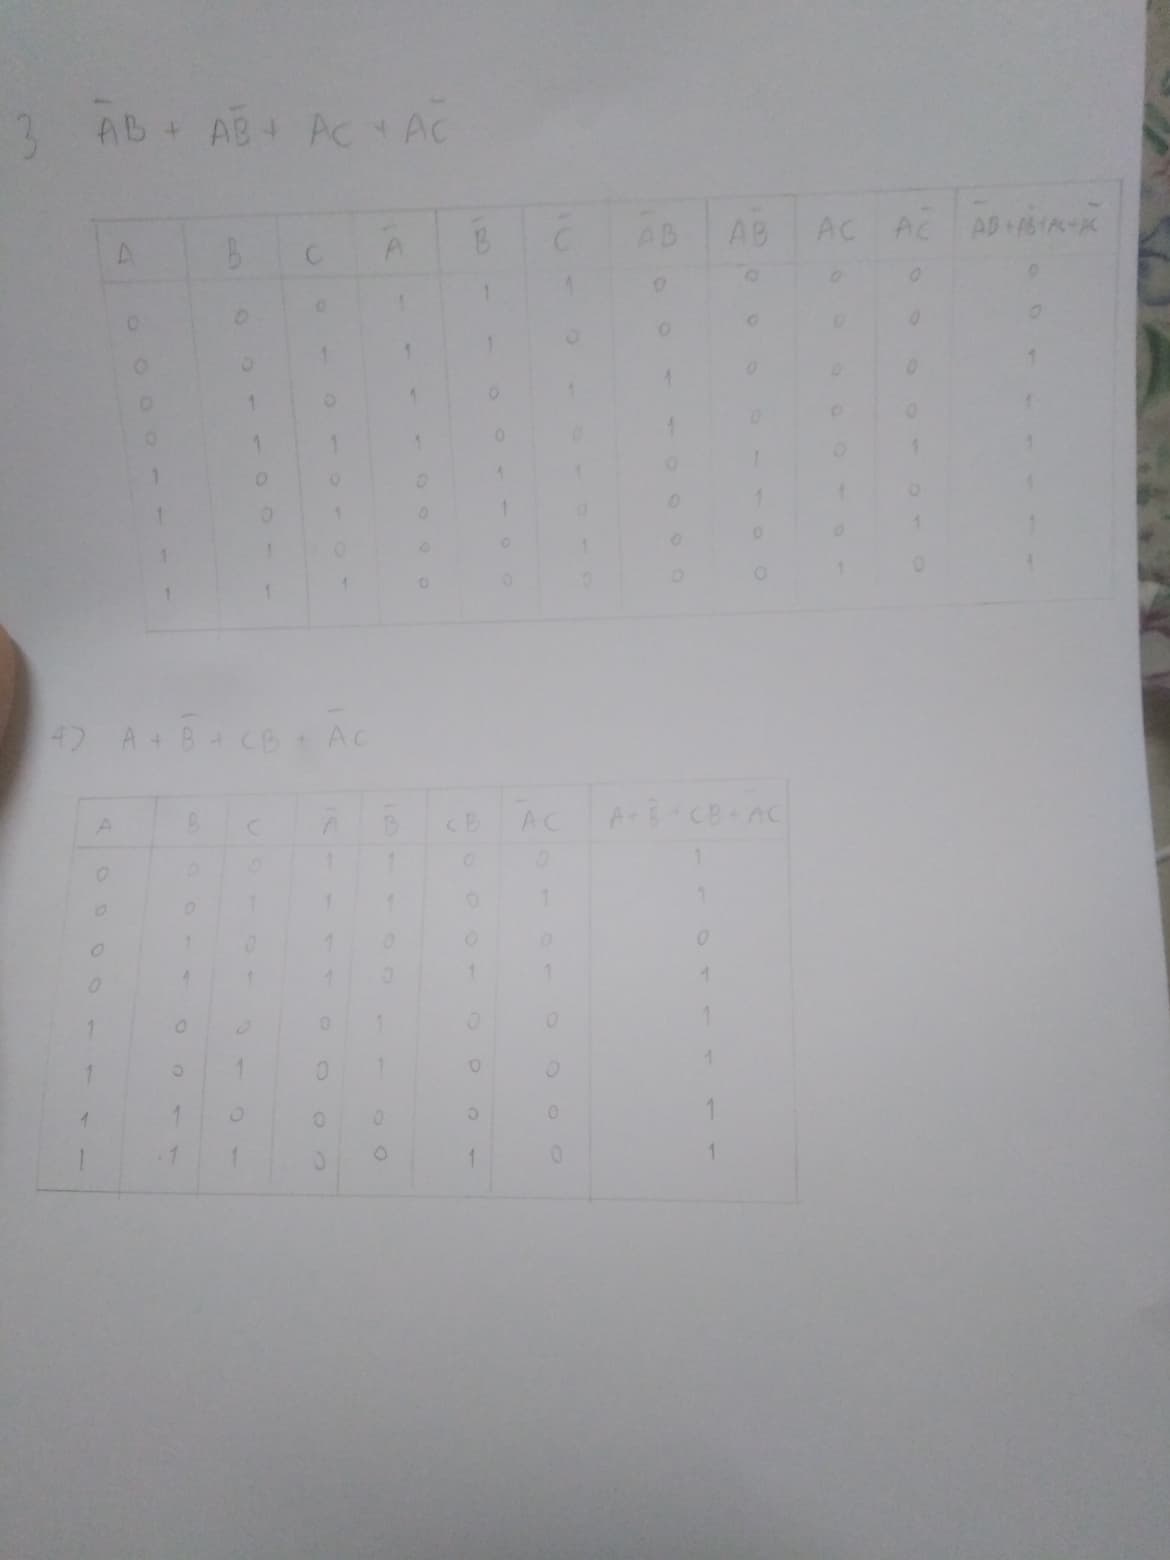 3 A̅B + AB̅ + AC + AC̅
A B C A̅ B̅ C̅ A̅B AB̅ AC AC̅ A̅B+AB̅+AC+AC̅
0 0 0 1 1 1 0 0 0 0 0
0 0 1 1 1 0 0 0 0 0 0
0 1 0 1 0 1 1 0 0 0 1
0 1 1 1 0 0 1 0 0 0 1
1 0 0 0 1 1 0 1 0 1 1
1 0 1 0 1 0 0 1 1 0 1
1 1 0 0 0 1 0 0 0 1 1
1 1 1 0 0 0 0 0 1 0 1
4) A + B̅ + CB + A̅C
A B C A̅ B̅ CB A̅C A+B̅+CB+A̅C
0 0 0 1 1 0 0 1
0 0 1 1 1 0 1 1
0 1 0 1 0 0 0 0
0 1 1 1 0 1 1 1
1 0 0 0 1 0 0 1
1 0 1 0 1 0 0 1
1 1 0 0 0 0 0 1
1 1 1 0 0 1 0 1